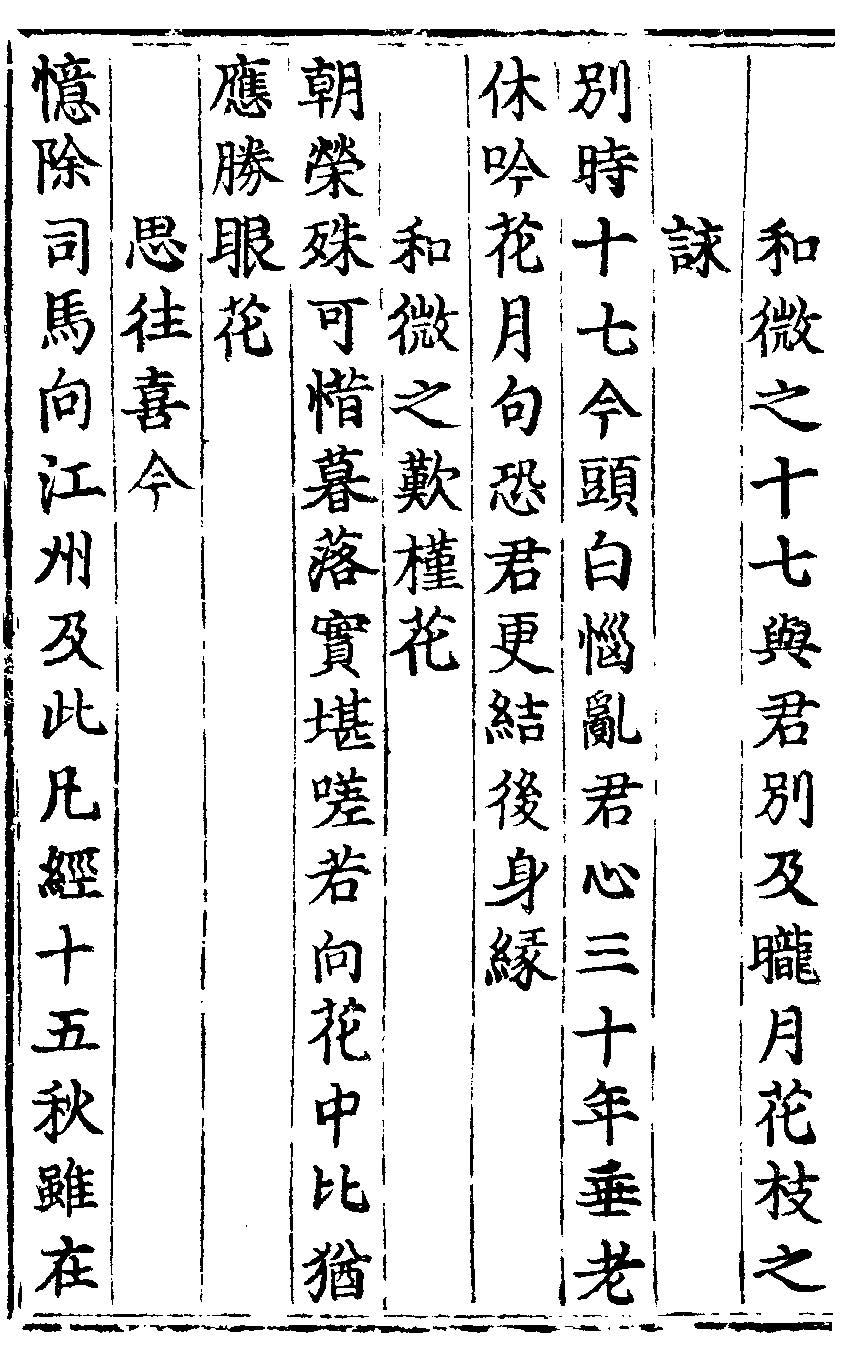 和微之十七與君別及朧月花枝之
詠
別時十七今頭白惱亂君心三十年垂老
休吟花月句恐君更結後身緣
和微之歎槿花
朝榮殊可惜暮落實堪嗟若向花中比猶
應勝眼花
思往喜今
憶除司馬向江州及此凡經十五秋雖在